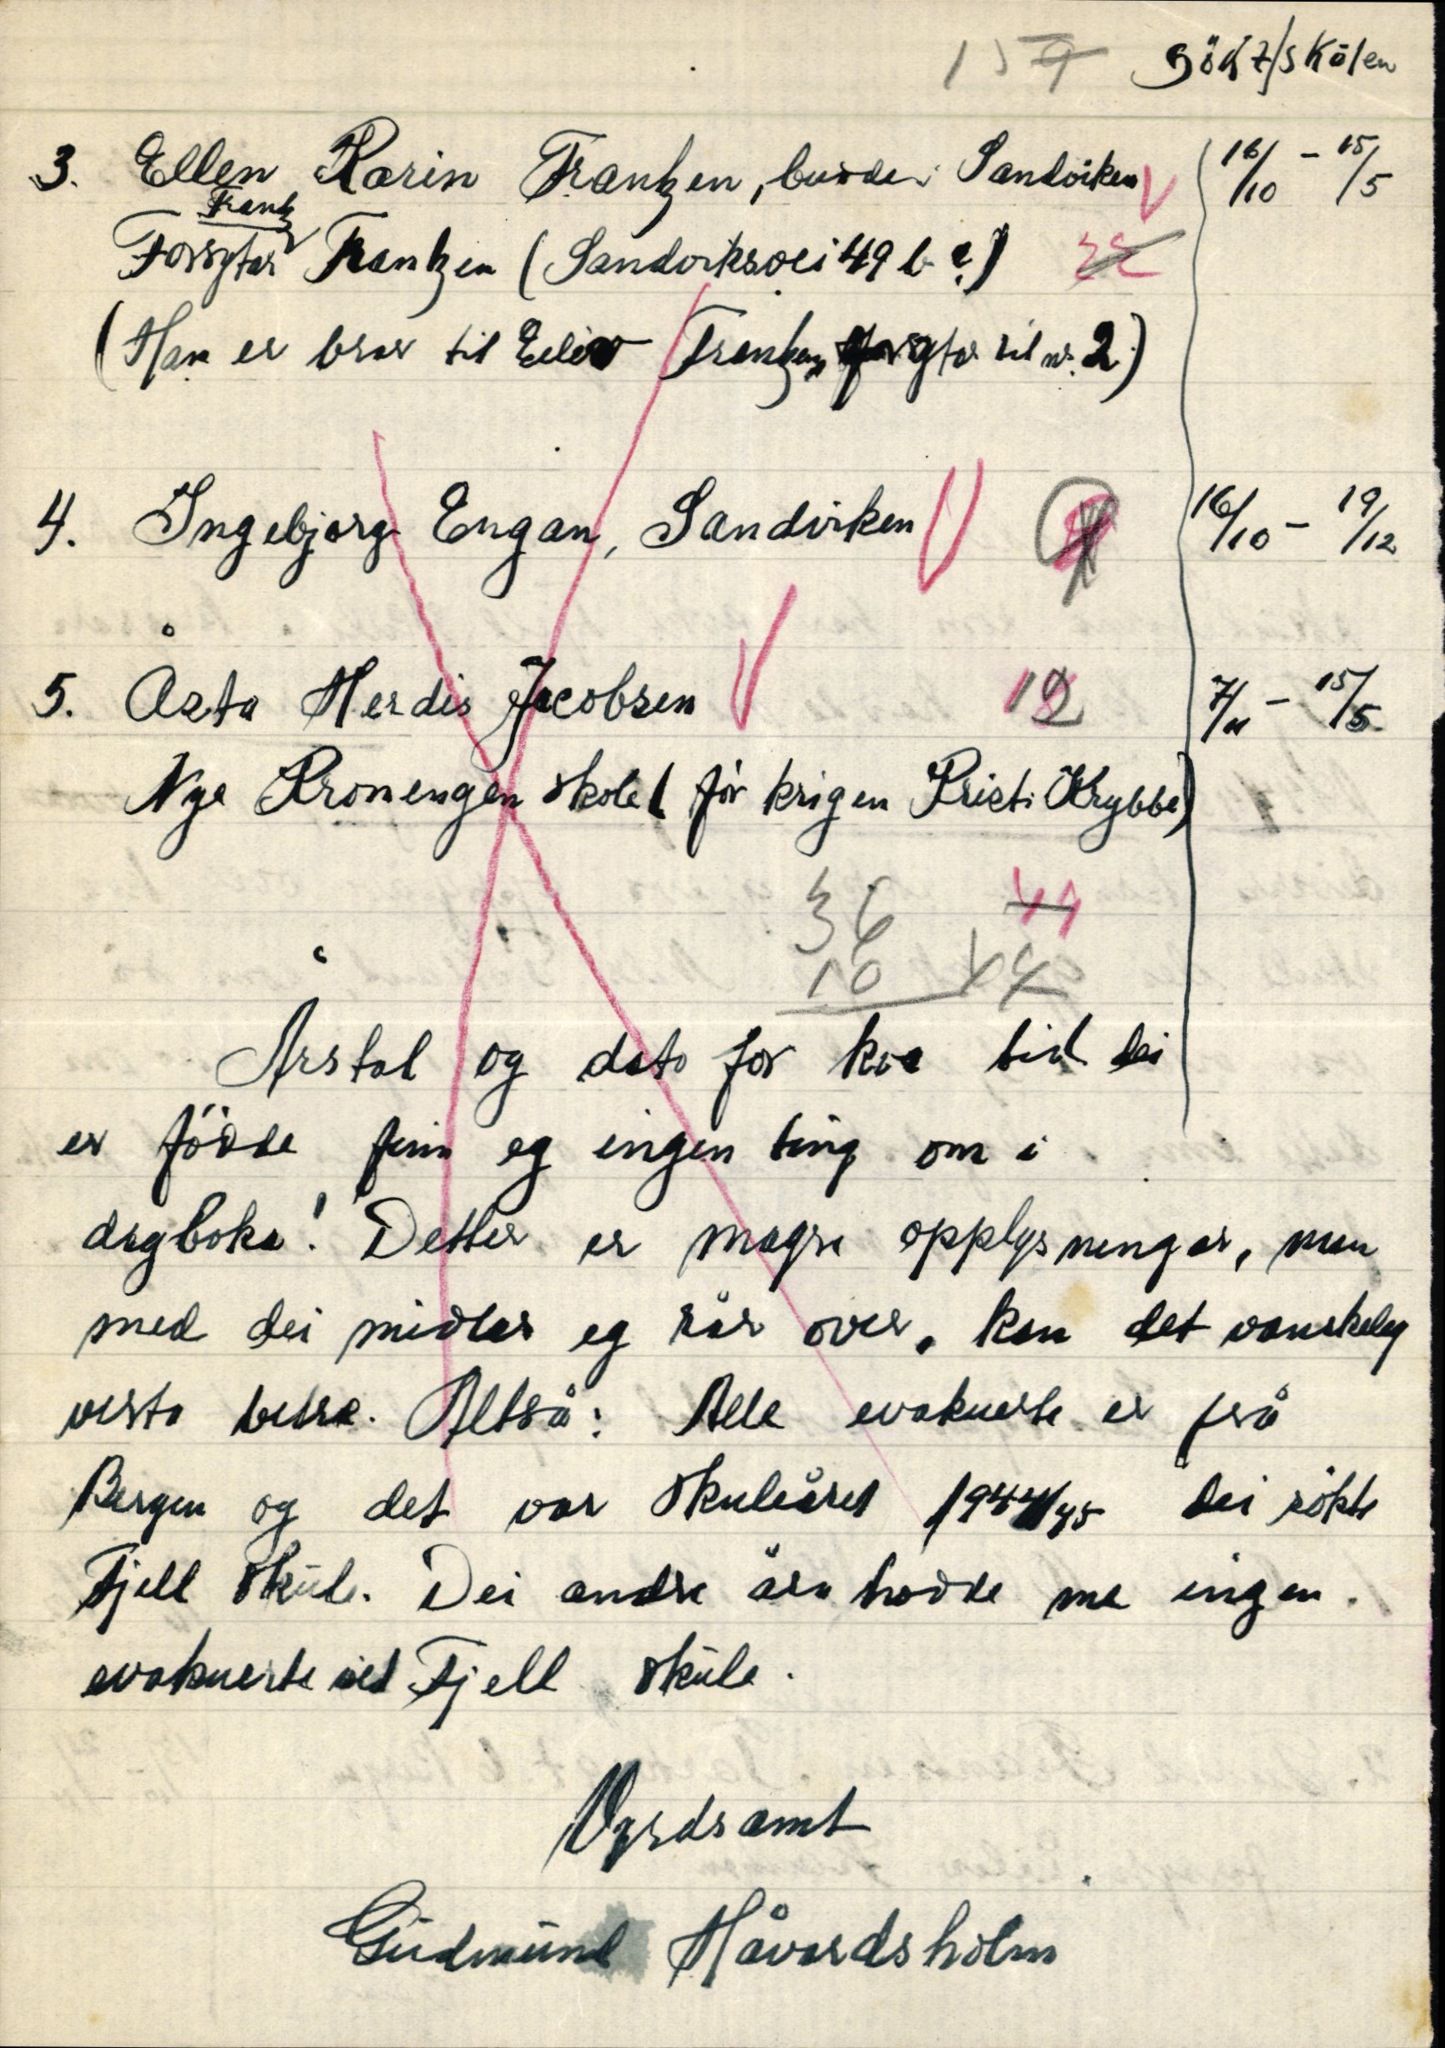 157 Sökt/skolen
3. Ellen Karin Frantzen, budde i Sandviken 16/10 - 15/5
Frantz
Forsytar Frantzen (Sandviksvei 49 b ?) 22
(Han er bror til Eiliv Frantzen, forsytar til nr. 2.)
4. Ingebjørg Engan, Sandviken 16/10 - 19/12
5. Åsta Herdis Jacobsen 12 7/11 - 15/5
Nye Kronengen skole (før krigen Kristi Krybbe)
36 44
10 44
Årstal og dato for kva tid dei
er födde finn eg ingen ting om i
dagboka! Detter er magre opplysningar, men
med dei midlar eg rår over, kan det vanskeleg
verta betre. Altså: Alle evakuerte er frå
Bergen og det var skuleåret 1944/45 dei sökte
Fjell skule. Dei andre åra hadde me ingen
evakuerte ved Fjell skule.
Vyrdsamt
Gudmund Håvardsholm